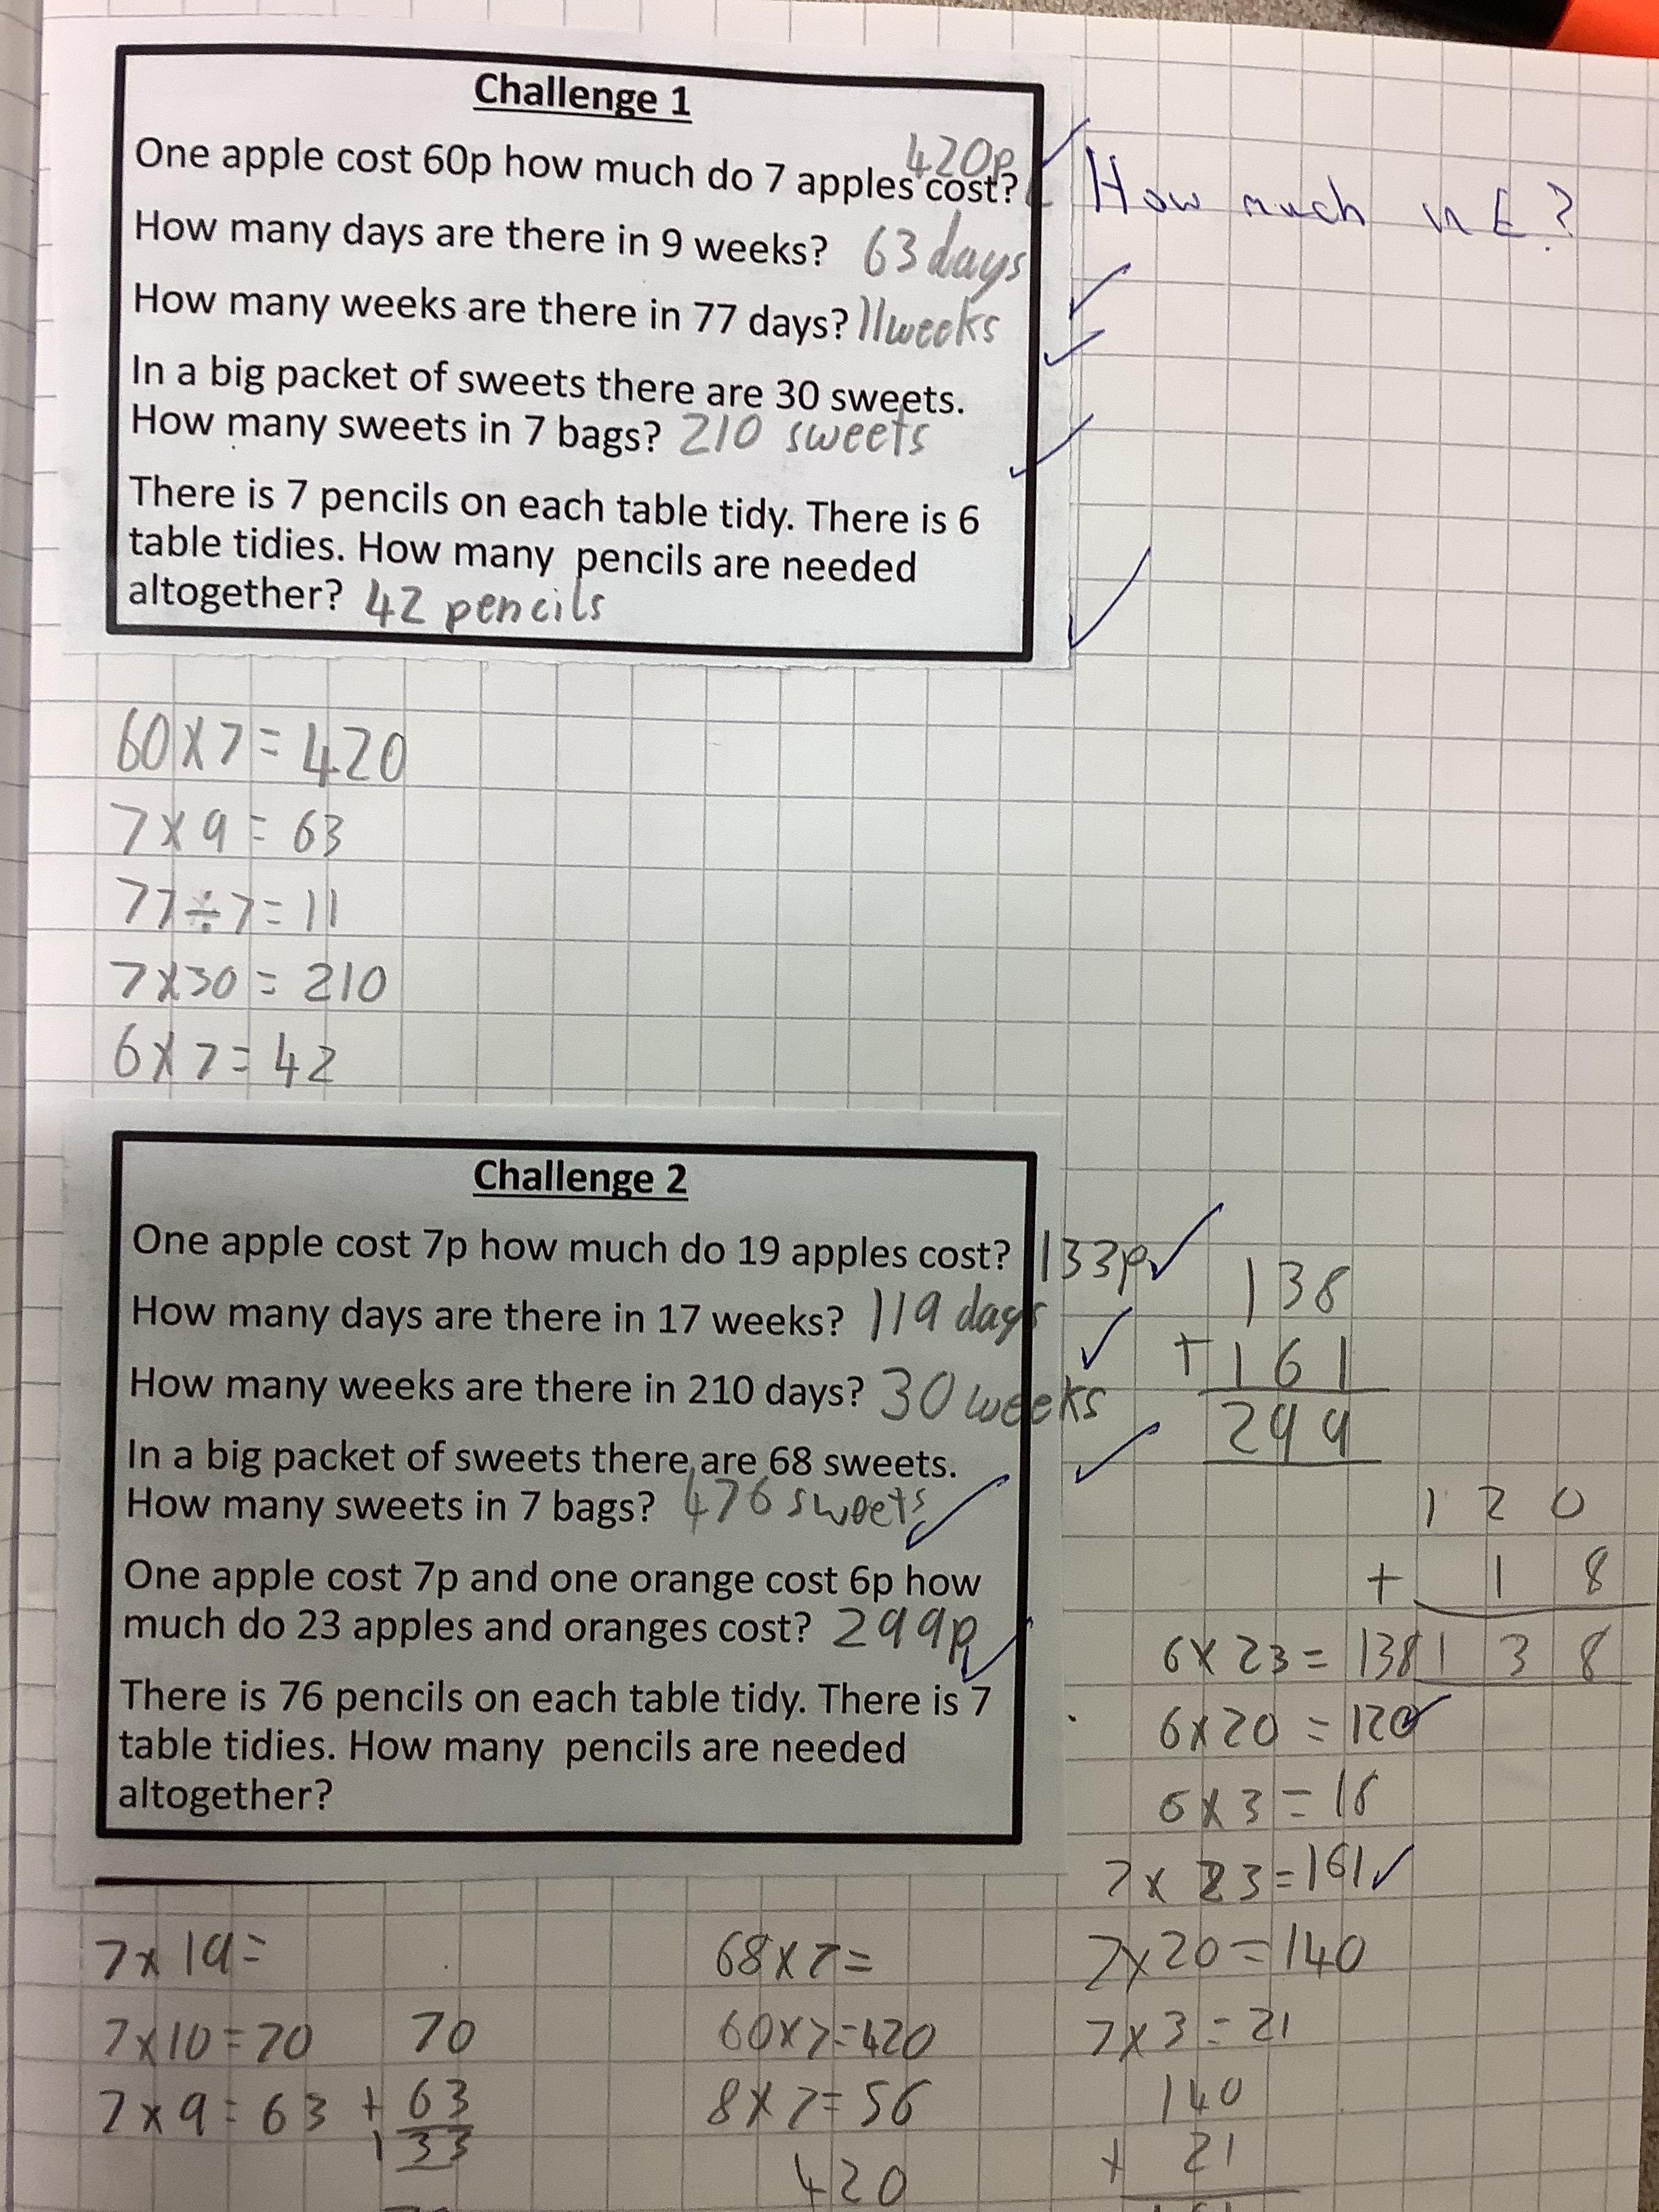 Challenge 1
One apple cost 60p how much do 7 apples cost? 420p
How much in £?
How many days are there in 9 weeks? 63 days
How many weeks are there in 77 days? 11 weeks
In a big packet of sweets there are 30 sweets.
How many sweets in 7 bags? 210 sweets
There is 7 pencils on each table tidy. There is 6
table tidies. How many pencils are needed
altogether? 42 pencils
60 x 7 = 420
7 x 9 = 63
77 ÷ 7 = 11
7 x 30 = 210
6 x 7 = 42
Challenge 2
One apple cost 7p how much do 19 apples cost? 133p
How many days are there in 17 weeks? 119 days
How many weeks are there in 210 days? 30 weeks
In a big packet of sweets there are 68 sweets.
How many sweets in 7 bags? 476 sweets
One apple cost 7p and one orange cost 6p how
much do 23 apples and oranges cost? 299p
There is 76 pencils on each table tidy. There is 7
table tidies. How many pencils are needed
altogether?
138
+ 161
299
120
+ 18
138
6 x 23 = 138
6 x 20 = 120
6 x 3 = 18
7 x 23 = 161
7 x 20 = 140
7 x 3 = 21
140
+ 21
7 x 19 =
7 x 10 = 70
7 x 9 = 63
70
+ 63
133
68 x 7 =
60 x 7 = 420
8 x 7 = 56
420